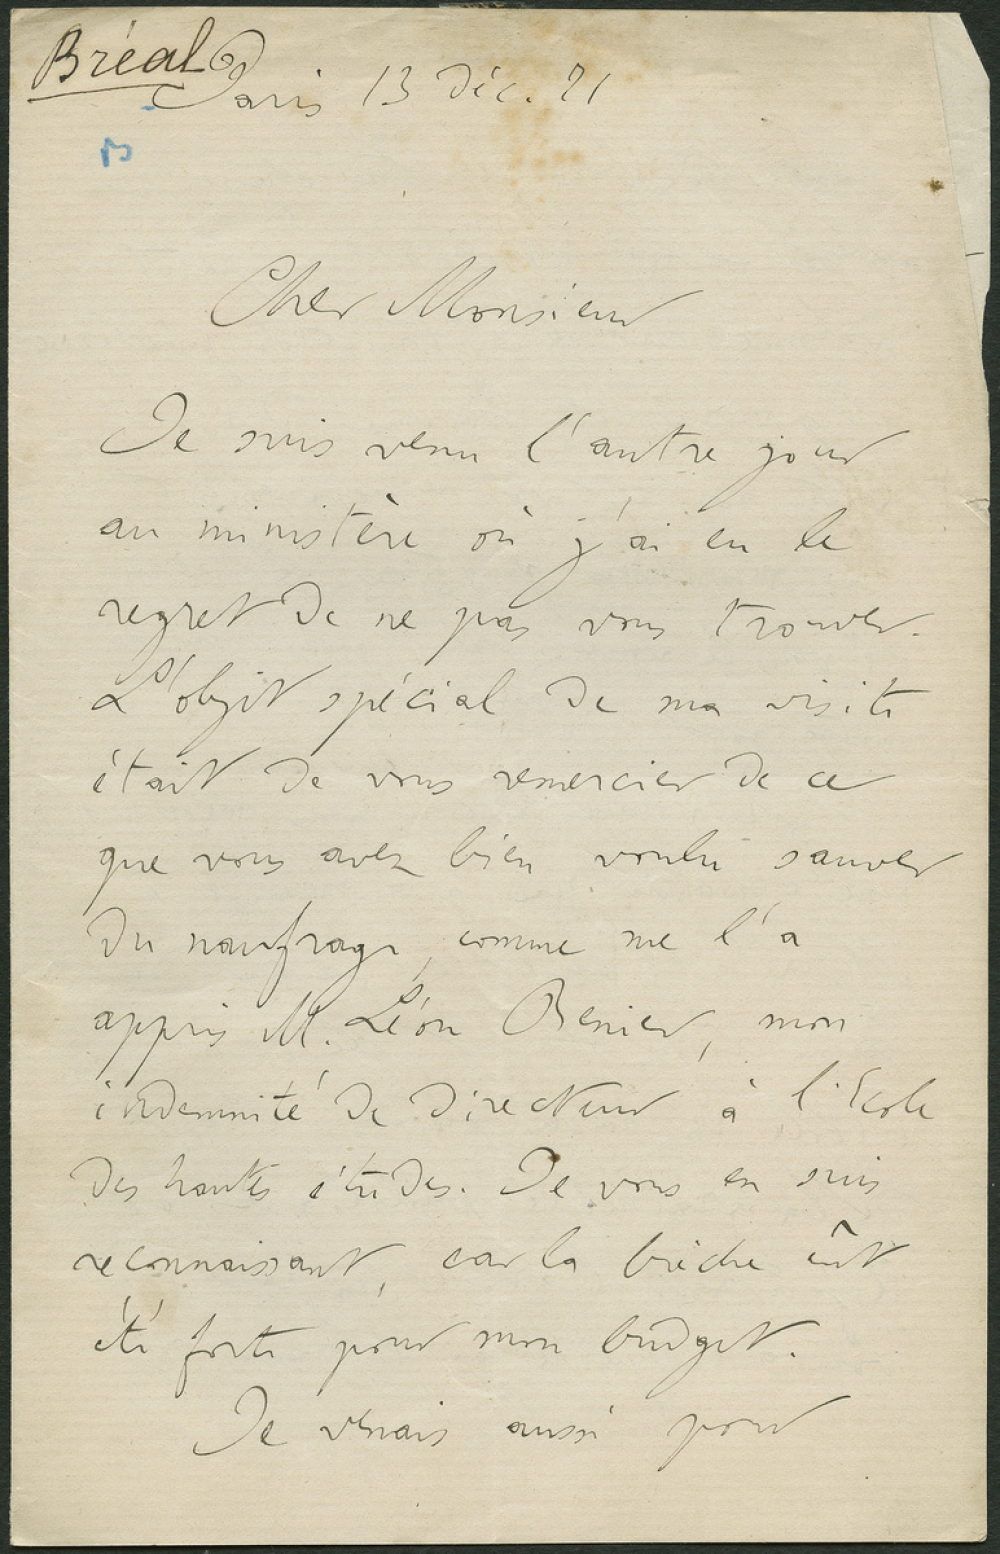 Bréal
Paris 13 Déc. 71
Cher Monsieur
Je suis venu l'autre jour
au ministère où j'ai eu le
regret de ne pas vous trouver.
L'objet spécial de ma visite
était de vous remercier de ce
que vous avez bien voulu sauver
du naufrage, comme me l'a
appris M. Léon Renier, mon
indemnité de directeur à l'Ecole
des hautes études. Je vous en suis
reconnaissant, car la brèche eût
été forte pour mon budget.
Je venais aussi pour